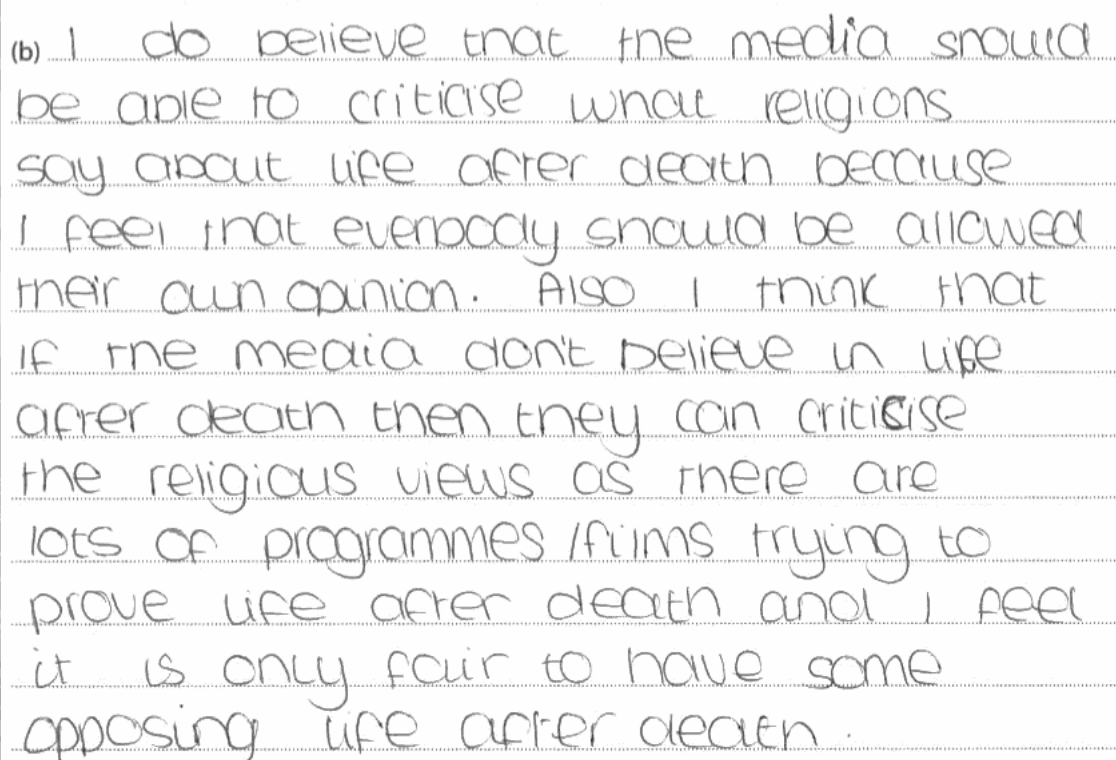 (b) I do believe that the media should
be able to criticise what religions
say about life after death because
I feel that everybody should be allowed
their own opinion. Also I think that
if the media don't believe in life
after death then they can criticise
the religious views as there are
lots of programmes /films trying to
prove life after death and I feel
it is only fair to have some
opposing life after death.